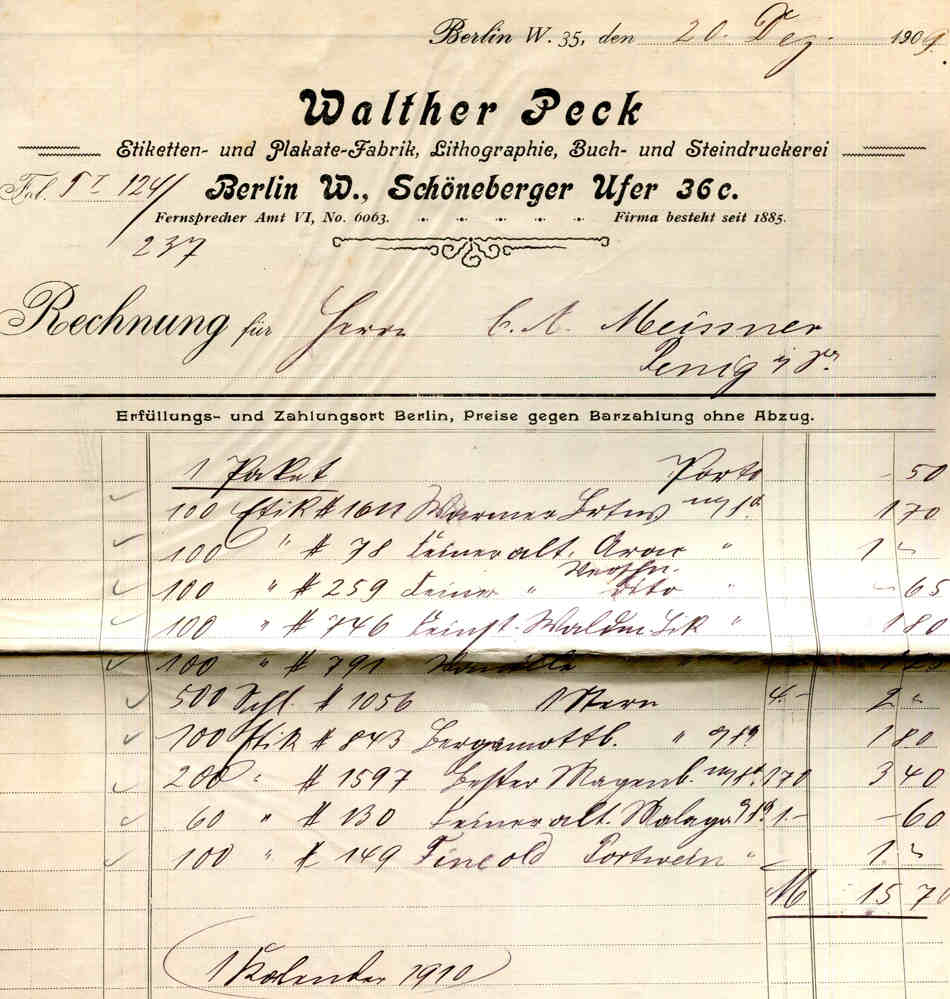 Berlin W. 35, den 20. Dez. 1909.
Walther Peck
Etiketten- und Plakate-Fabrik, Lithographie, Buch- und Steindruckerei
Fol. 1241
Berlin W., Schöneberger Ufer 36c.
Fernsprecher Amt VI, No. 6063. Firma besteht seit 1885.
237
Rechnung für Herrn C. A. Meissner
Penig
Erfüllungs- und Zahlungsort Berlin, Preise gegen Barzahlung ohne Abzug.
1 Paket Porto - 50
100 Etik # 1611 Warmer 1 70
100 " # 78 Feiner alt. Arac " 1 "
100 " # 259 Feiner " Verschn. dito " - 65
100 " # 746 Feinst. Waldm. " 1 80
100 " # 791 Vanille "
500 Schl. # 1056 1 Stern 4.- 2 "
100 Etik # 843 Bergamottb. " 1 80
200 " # 1597 Bester Magenb. 1 70 3 40
60 " # 130 Feiner alt. Malaga 1.- - 60
100 " # 149 Fine old Portwein " 1 "
M 15 70
1 Kalender 1910